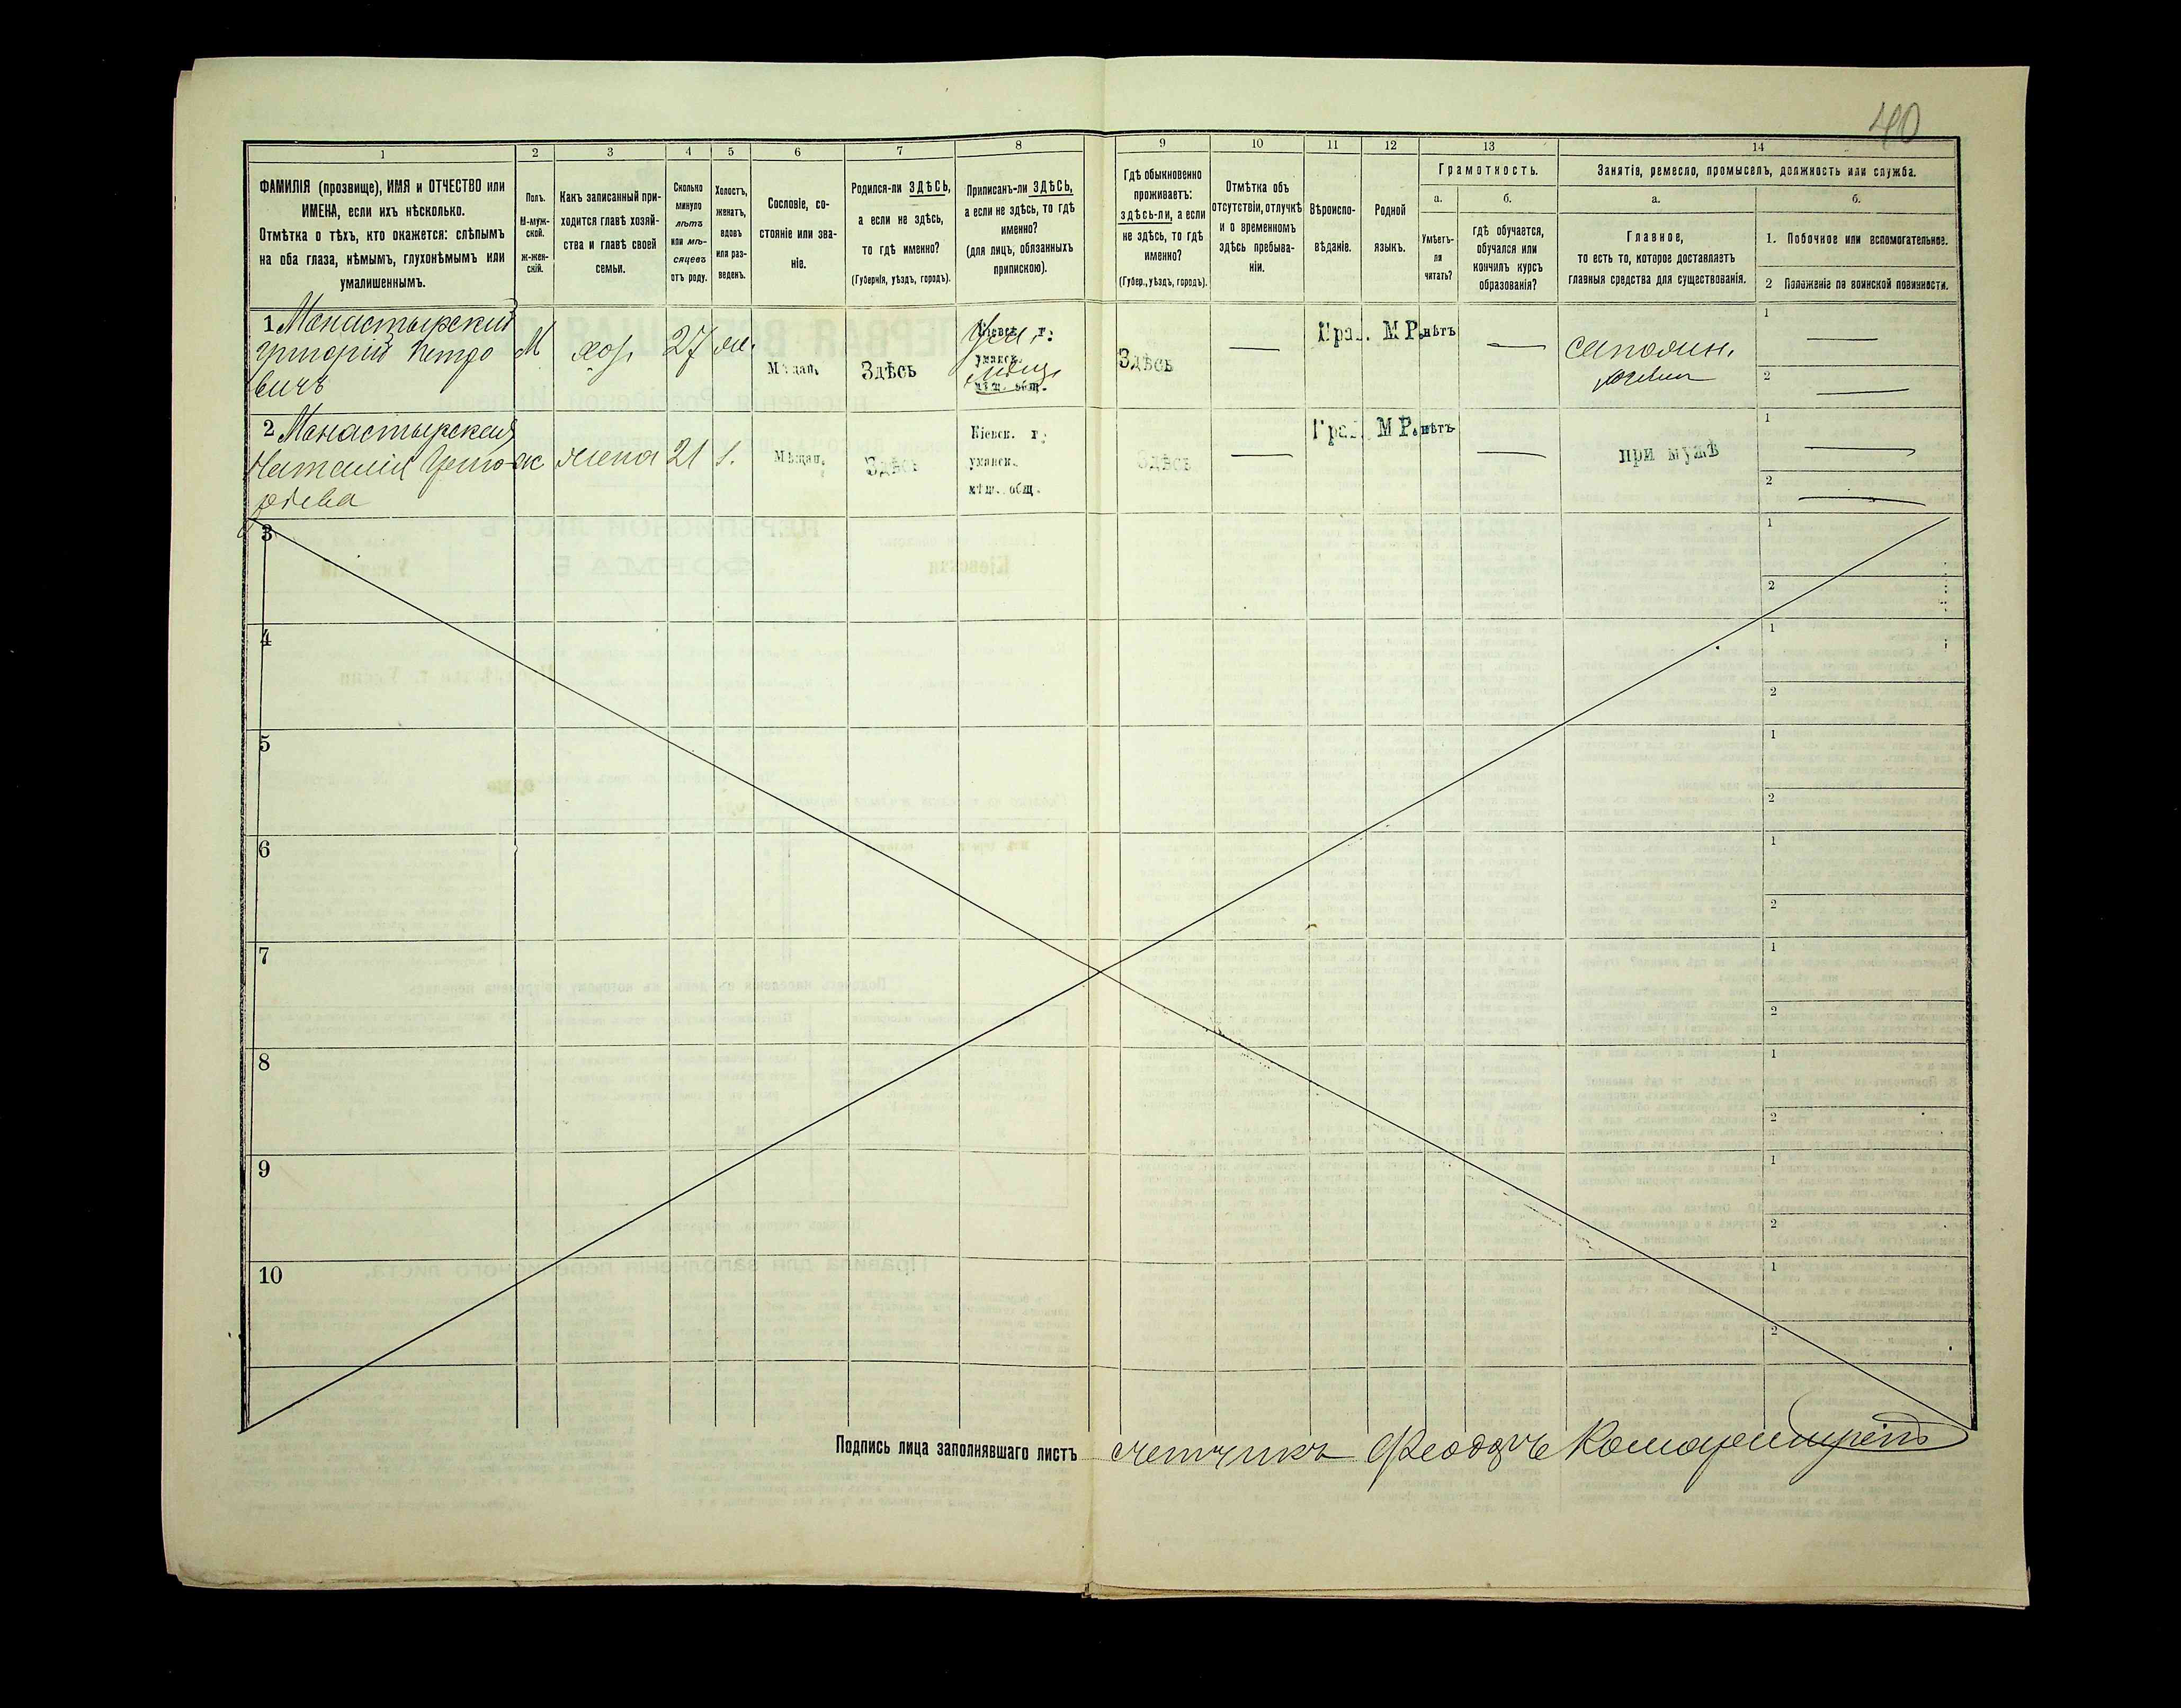 40
1 2 3 4 5 6 7 8 9 10 11 12 13 14
ФАМИЛІЯ (прозвище), ИМЯ и ОТЧЕСТВО или
ИМЕНА, если ихъ нѣсколько.
Отмѣтка о тѣхъ, кто окажется: слѣпымъ
на оба глаза, нѣмымъ, глухонѣмымъ или
умалишеннымъ.
Полъ.
М-муж-
ской.
Ж-жен-
скій.
Какъ записанный при-
ходится главѣ хозяй-
ства и главѣ своей
семьи.
Сколько
минуло
лѣтъ
или мѣ-
сяцевъ
отъ роду.
Холостъ,
женатъ,
вдовъ
или раз-
веденъ.
Сословіе, со-
стояніе или зва-
ніе.
Родился-ли ЗДѢСЬ,
а если не здѣсь,
то гдѣ именно?
(Губернія, уѣздъ, городъ).
Приписанъ-ли ЗДѢСЬ,
а если не здѣсь, то гдѣ
именно?
(для лицъ, обязанныхъ
припискою).
Гдѣ обыкновенно
проживаетъ:
здѣсь-ли, а если
не здѣсь, то гдѣ
именно?
(Губер., уѣздъ, городъ).
Отмѣтка объ
отсутствіи, отлучкѣ
и о временномъ
здѣсь пребыва-
ніи.
Вѣроиспо-
вѣданіе.
Родной
языкъ.
Грамотность.
а.
Умѣетъ-
ли
читать?
б.
гдѣ обучается,
обучался или
кончилъ курсъ
образованія?
Занятія, ремесло, промыселъ, должность или служба.
а.
Главное,
то есть то, которое доставляетъ
главныя средства для существованія.
б.
1. Побочное или вспомогательное.
2 Положеніе по воинской повинности.
1 Монастырский
Григорій Петро
вичъ
М
хоз.
27
же.
Мѣщан.
Здѣсь
Кіевск. г.
уманск.
мѣщ. общ.
Здѣсь
—
Пра . М Р. нѣтъ
—
1 —
2 —
2 Монастырская
Наталія Григо
рьева
ж
жена
21
Мѣщан.
Здѣсь
Кіевск. г.
уманск.
мѣщ. общ.
Здѣсь
—
Пра М Р. нѣтъ
—
при мужѣ
1 —
2 —
3 1
2
4 1
2
5 1
2
6 1
2
7 1
2
8 1
2
9 1
2
10 1
2
Подпись лица заполнявшаго листъ счетчикъ